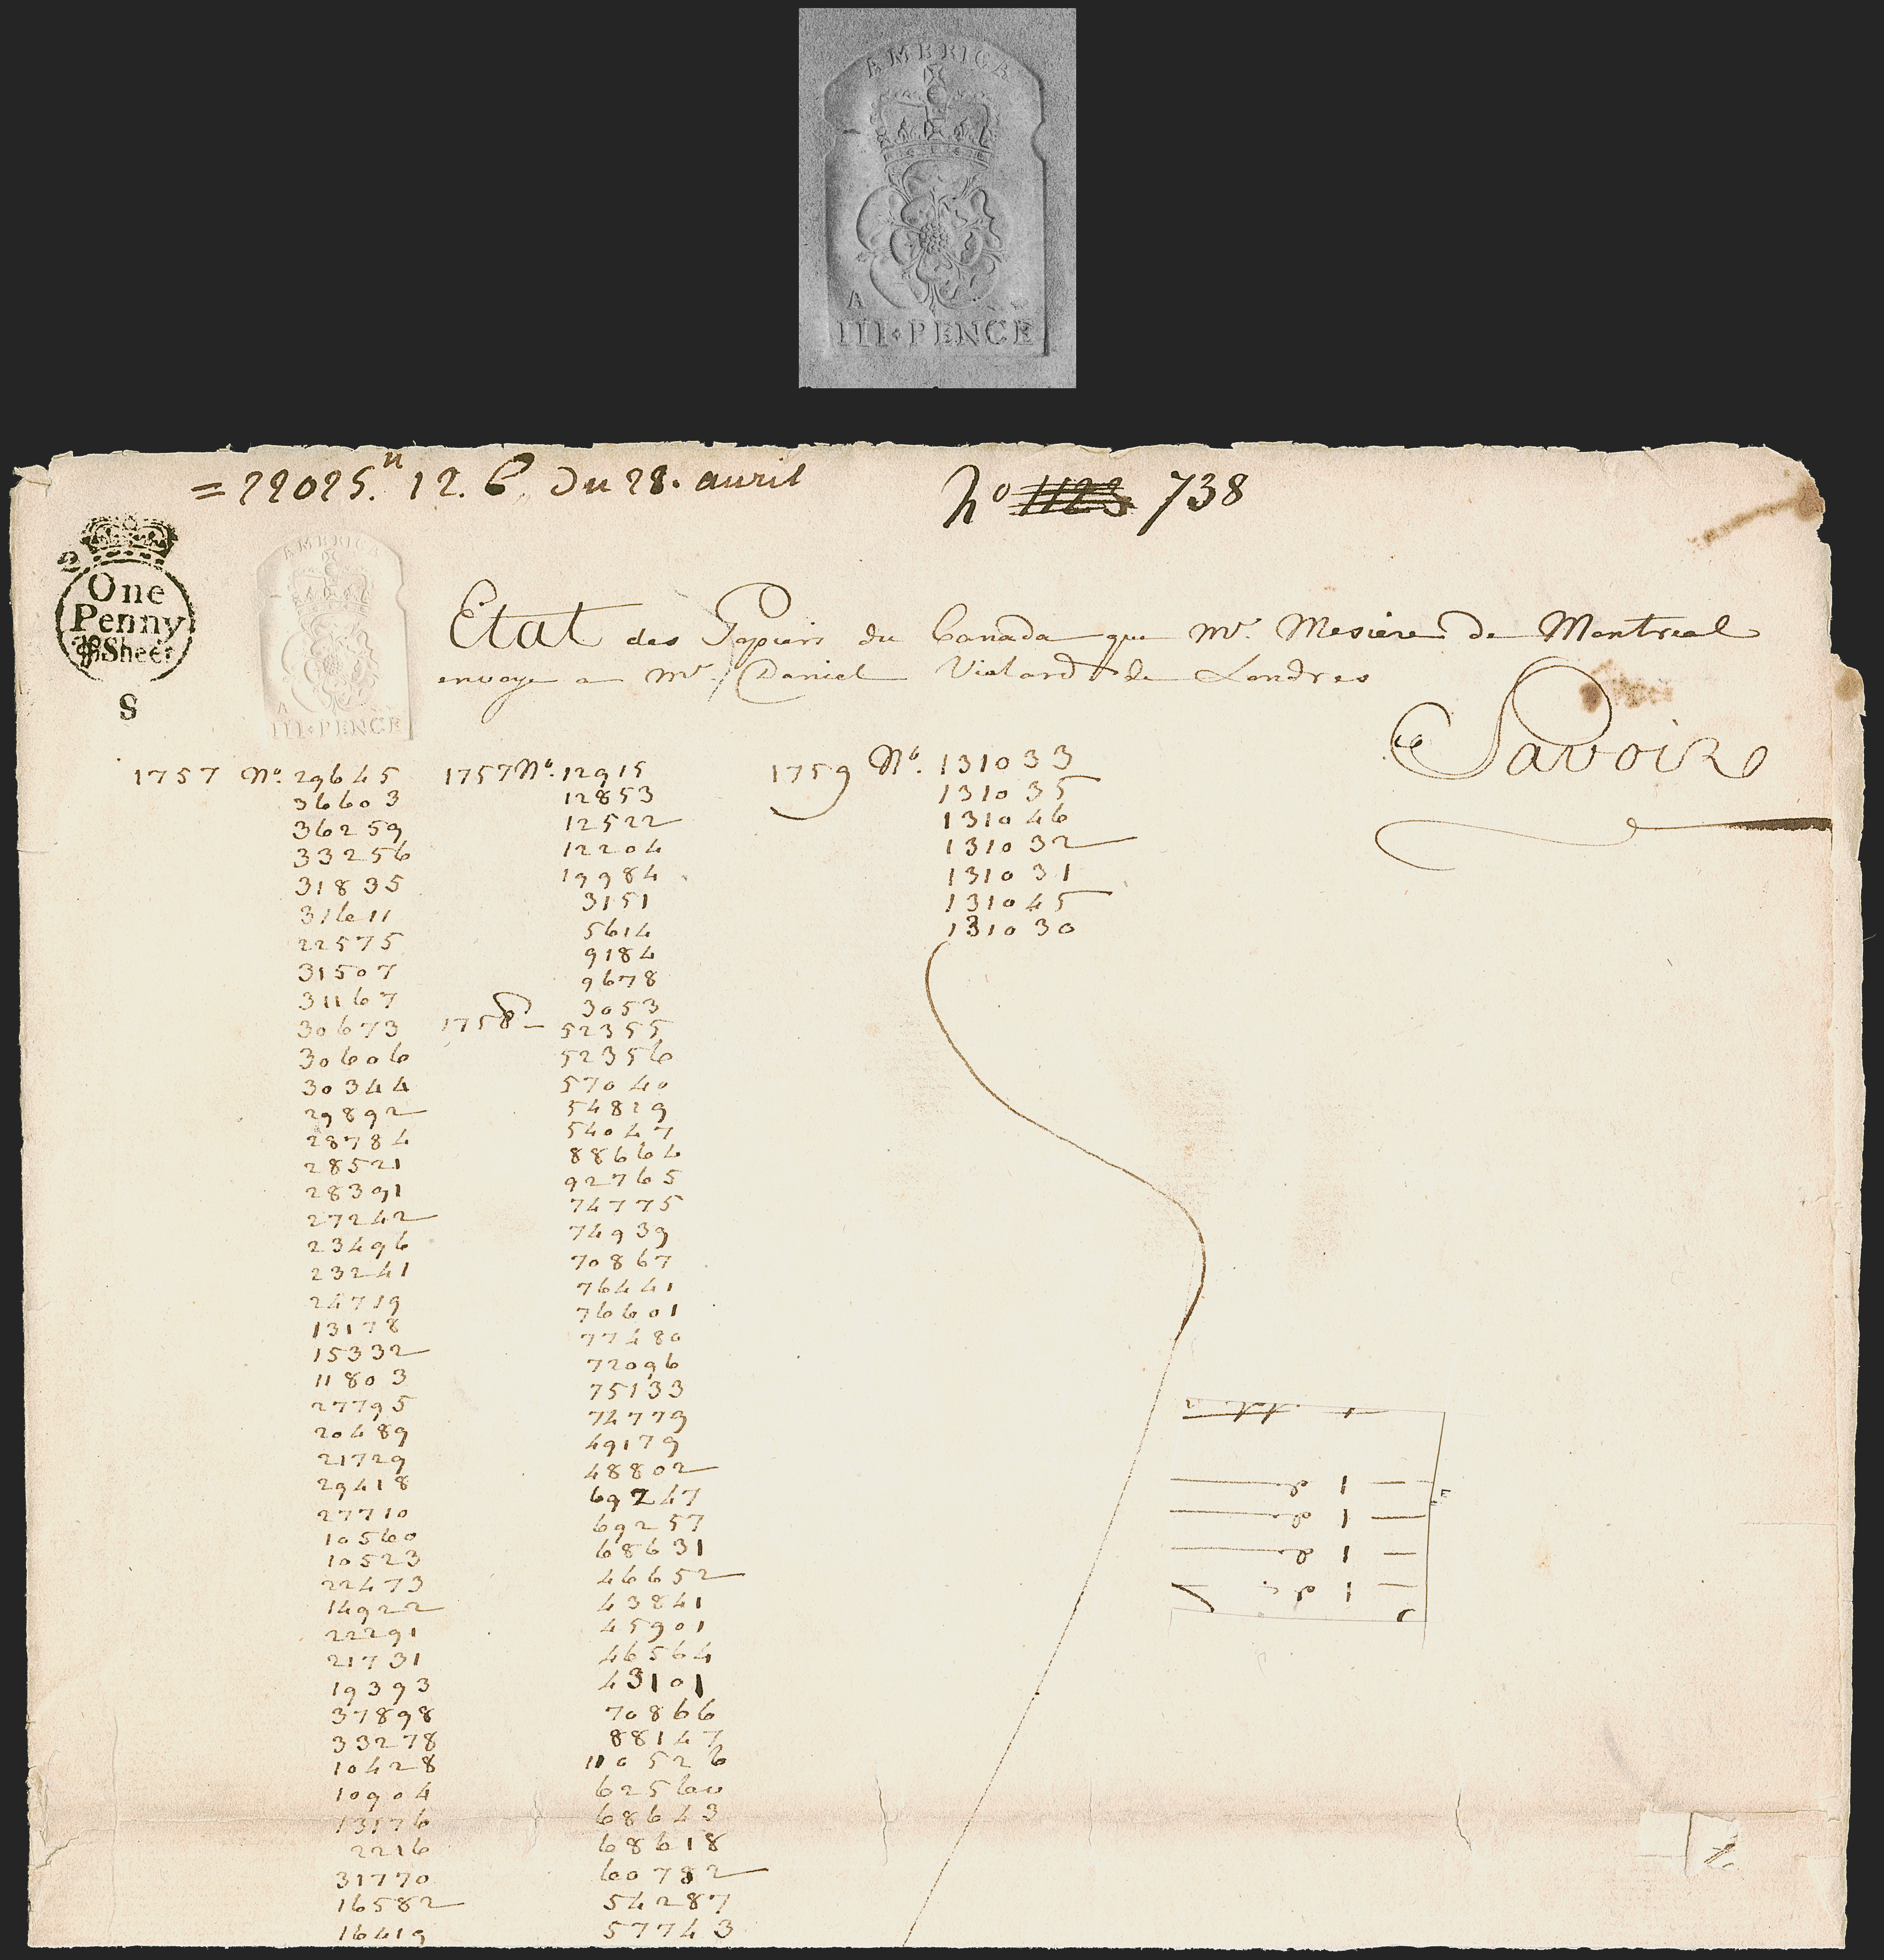 AMERICA
A
III·PENCE
=22025.tt 12. 6. du 28. avril
No 1123 738
One
Penny
Sheet
S
AMERICA
A
III·PENCE
Etat des Papiers du Canada que Mr. Mesiere de Montreal
envoye a Mr. Daniel Vialard de Londres
Savoir
1757 No. 29645
36603
36259
33256
31835
31611
22575
31507
31167
30673
30606
30344
29892
28784
28521
28391
27242
23496
23241
24719
13178
15332
11803
27795
20489
21729
29418
27710
10560
10523
22473
14922
22291
21731
19393
37898
33278
10428
10904
13176
2216
31770
16582
16419
1757 No. 12915
12853
12522
12204
19984
3151
5614
9184
9678
3053
1758 – 52355
52356
57040
54819
54047
88664
92765
74775
74939
70867
76441
76601
77480
72096
75133
74779
49179
48802
69247
69257
68631
46652
43841
45901
46564
43101
70866
88147
110526
62560
68643
68618
60782
54287
57743
1759 No. 131033
131035
131046
131032
131031
131045
131030